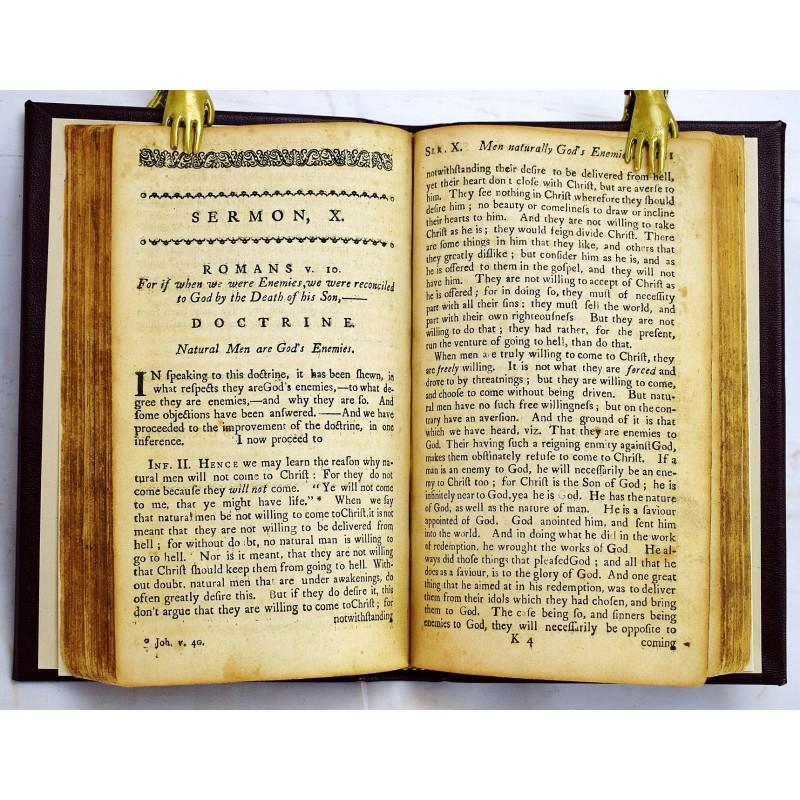 SERMON, X.
ROMANS v. 10.
For if when we were Enemies, we were reconciled
to God by the Death of his Son,——
DOCTRINE.
Natural Men are God's Enemies.
IN ſpeaking to this doctrine, it has been ſhewn, in
what reſpects they are God's enemies,—to what de-
gree they are enemies,—and why they are ſo. And
ſome objections have been anſwered.——And we have
proceeded to the improvement of the doctrine, in one
inference. I now proceed to
INF. II. HENCE we may learn the reaſon why na-
tural men will not come to Chriſt: For they do not
come becauſe they will not come. "Ye will not come
to me, that ye might have life."* When we ſay
that natural men be not willing to come to Chriſt, it is not
meant that they are not willing to be delivered from
hell; for without doubt, no natural man is willing to
go to hell. Nor is it meant, that they are not willing
that Chriſt ſhould keep them from going to hell. With-
out doubt, natural men that are under awakenings, do
often greatly deſire this. But if they do deſire it, this
don't argue that they are willing to come to Chriſt; for
notwithſtanding
* Joh. v. 40.
SER. X. Men naturally God's 1
notwithſtanding their deſire to be delivered from hell,
yet their heart dont cloſe with Chriſt, but are averſe to
him. They ſee nothing in Chriſt wherefore they ſhould
deſire him; no beauty or comelineſs to draw or incline
their hearts to him. And they are not willing to take
Chriſt as he is; they would feign divide Chriſt. There
are ſome things in him that they like, and others that
they greatly diſlike; but conſider him as he is, and as
he is offered to them in the goſpel, and they will not
have him. They are not willing to accept of Chriſt as
he is offered; for in doing ſo, they muſt of neceſſity
part with all their ſins; they muſt ſell the world, and
part with their own righteouſneſs But they are not
willing to do that; they had rather, for the preſent,
run the venture of going to hell, than do that.
When men are truly willing to come to Chriſt, they
are freely willing. It is not what they are forced and
drove to by threatnings; but they are willing to come,
and chooſe to come without being driven. But natu-
ral men have no ſuch free willingneſs; but on the con-
trary have an averſion. And the ground of it is that
which we have heard, viz. That they are enemies to
God. Their having ſuch a reigning enmity againſt God,
makes them obſtinately refuſe to come to Chriſt. If a
man is an enemy to God, he will neceſſarily be an ene-
my to Chriſt too; for Chriſt is the Son of God; he is
infinitely near to God, yea he is God. He has the nature
of God, as well as the nature of man. He is a ſaviour
appointed of God. God anointed him, and ſent him
into the world. And in doing what he did in the work
of redemption, he wrought the works of God He al-
ways did thoſe things that pleaſed God; and all that he
does as a ſaviour, is to the glory of God. And one great
thing that he aimed at in his redemption, was to deliver
them from their idols which they had choſen, and bring
them to God. The caſe being ſo, and ſinners being
enemies to God, they will neceſſarily be oppoſite to
K 4 coming